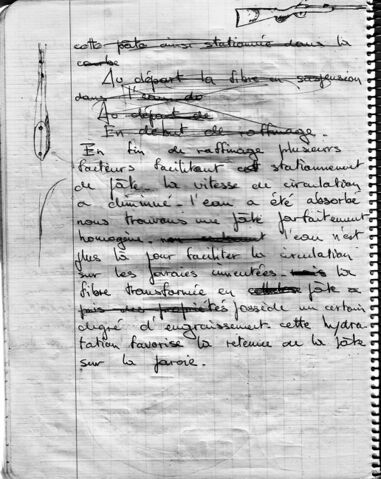 cette pate ainsi stationnée dans la
courbe
Au départ la fibre en suspension
dans l'eau do
Au départ de
En début de raffinage.
En fin de raffinage plusieurs
facteurs facilitant cet stationnement
de pâte. la vitesse de circulation
a diminué. l'eau a été absorbe
nous trouvons une pâte parfaitement
homogène. l'eau n'est
plus là pour faciliter la circulation
sur les parties incurvées. mais la
fibre transformée en pâte a
pris des propriétés possède un certain
degré d'engraissement. cette hydra
tation favorise la retenue de la pâte
sur la paroie.